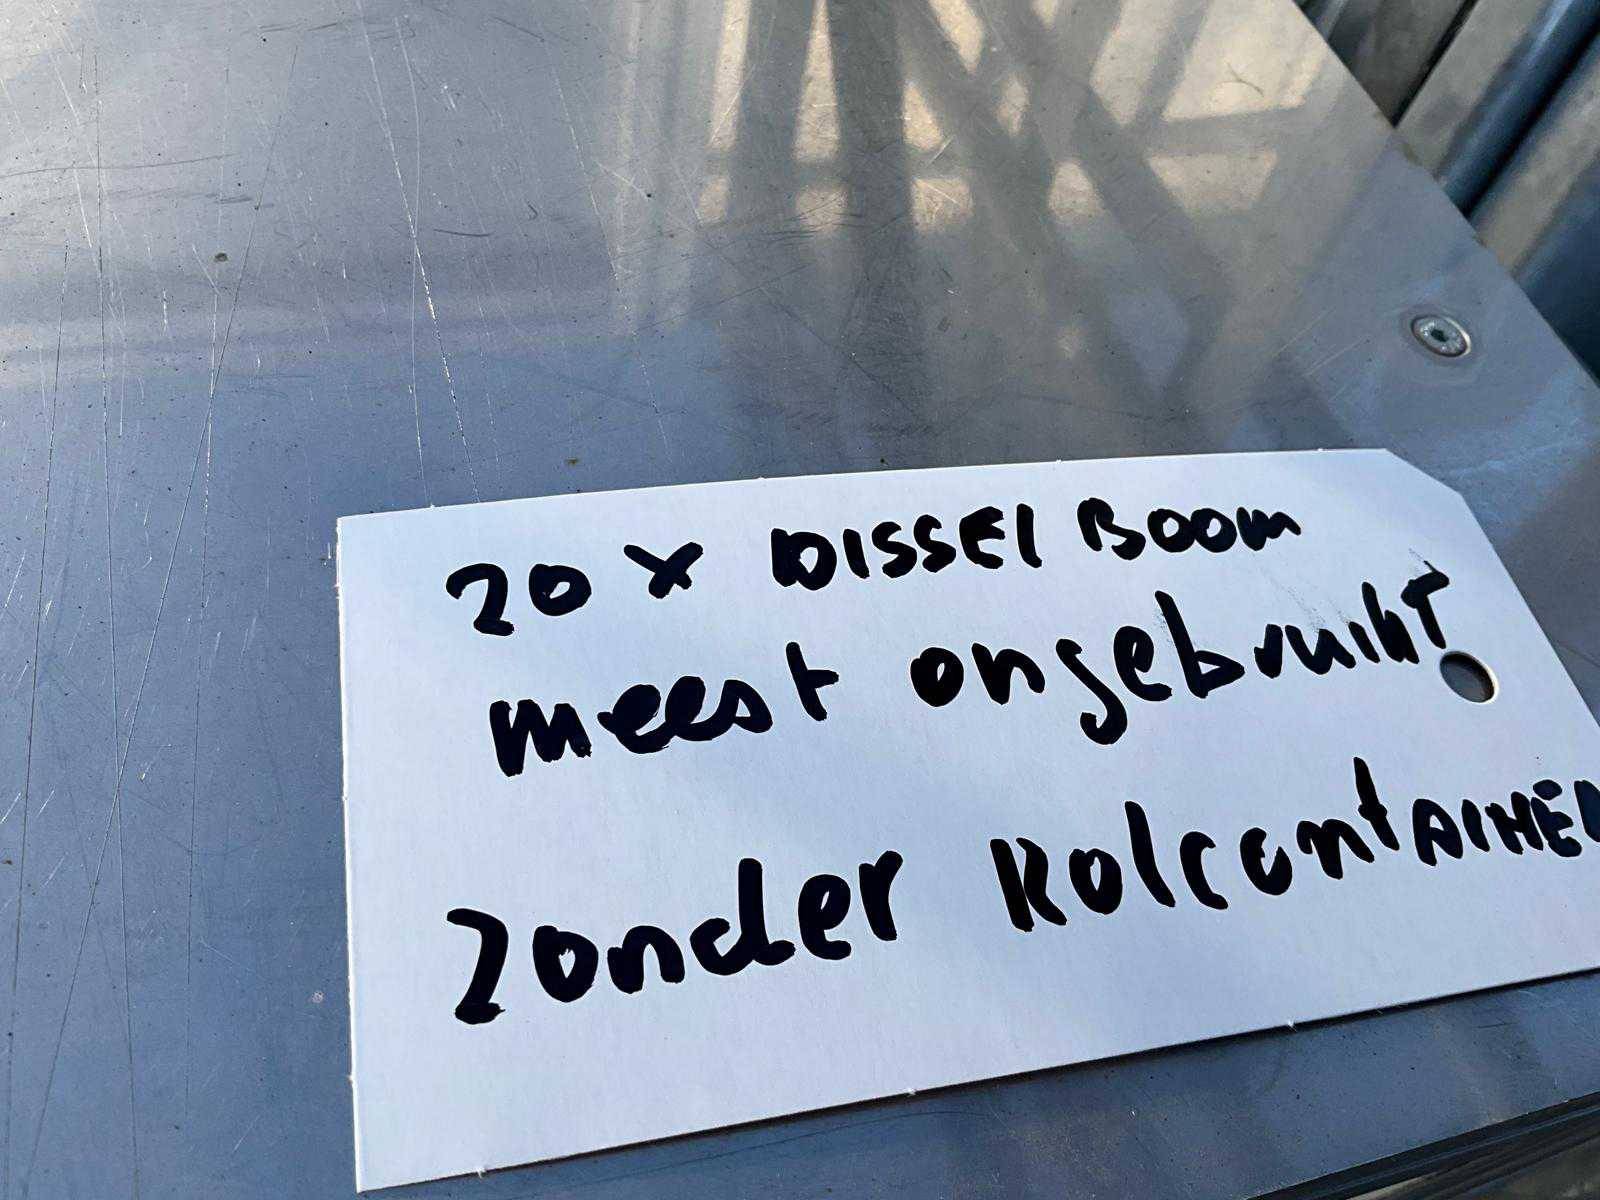 20 x DISSEL BOOM
meest ongebruikt
zonder Rolcontainer